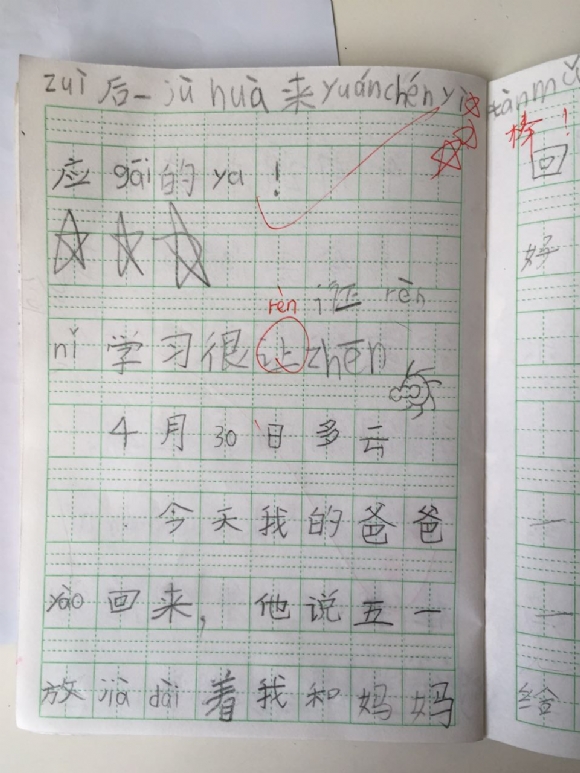 zuì后一jù huà来yuánchényì
应gāi的ya！
rèn 证 rèn
nǐ学习很让zhēn
4月30日多云
今天我的爸爸
yào回来，他说五一
放jià dài着我和妈妈
棒！
回
好
一
一
给